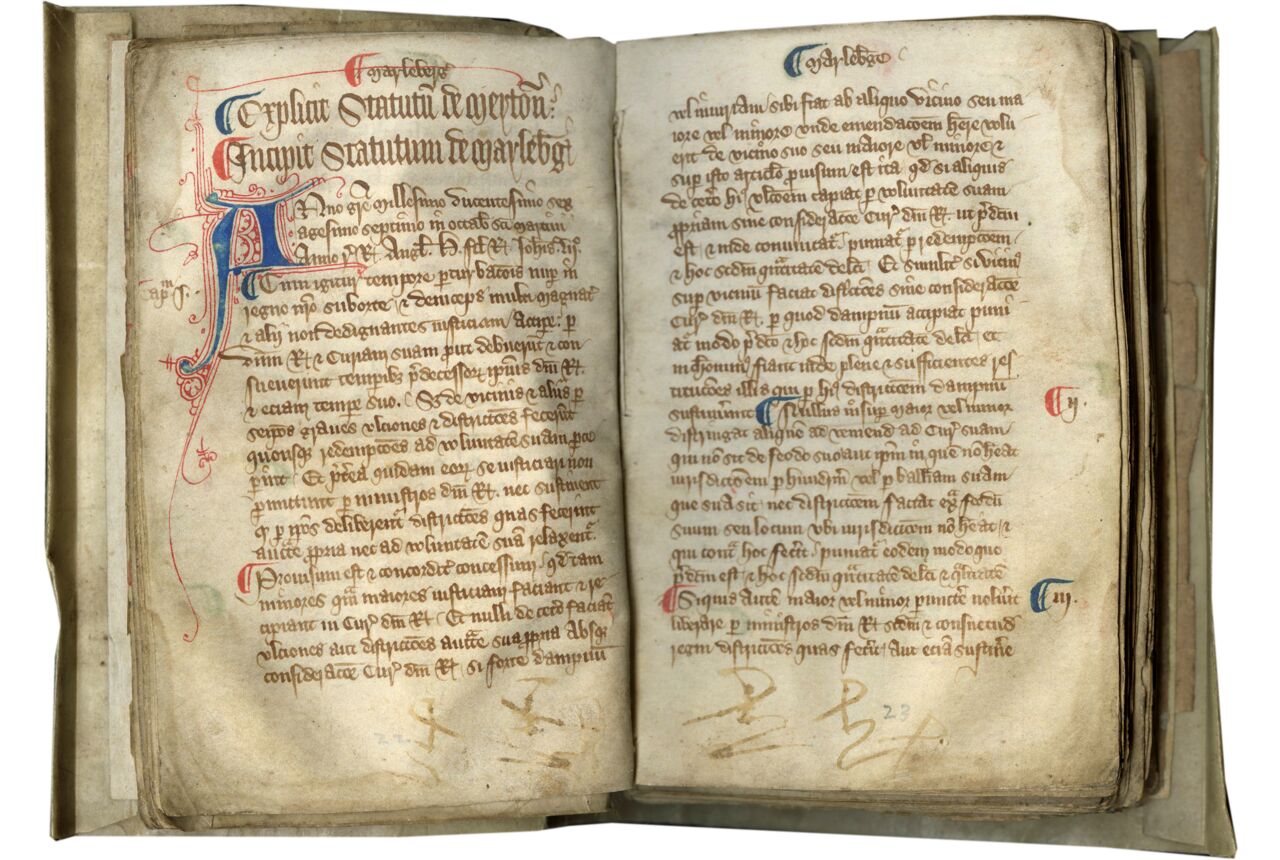 ¶ Marleberḡ
¶ Explicit Statutū de Merton̄.
¶ Incipit Statutum de Marleb̄gͥ
ANno gr̄e Millesimo ducentesimo sex
agesimo septimo in octab̄ sc̄i Martini
Anno rͬ. R̄. Angl̄. H. fil̄ R̄. Joh̄is. lijͦ.
Cap̄m .j. ¶ Cum igitur tempore ꝑturbac̄ois nuꝑ in
regno n̄ro suborte ⁊ deinceps multi magnat̄
⁊ alij non dedignantes iusticiam Acciꝑe. ꝑ
dn̄m R̄. ⁊ Curiam suam prout debuerūt ⁊ con
sueuerunt tempibꝫ p̄decessor̄ ip̄ius dn̄i R̄.
⁊ eciam tempe suo. S; de vicinis ⁊ alijs ꝑ
seip̄os graues vlciones ⁊ districc̄ōes fecerūt
quousqꝫ redempc̄ōes ad voluntatē suam ꝑce
ꝑint. Et p̄t̄ea quidam eor̄ se iusticiari non
ꝑmittunt ꝑ ministros dn̄i R̄. nec sustinent
qͩ ꝑ ip̄os deliberent̄ districc̄ōes quas fecerint
auctē ꝓpria nec ad voluntatem suā relaxent̄.
¶ Prouisum est ⁊ concordit̄ concessum. qd̄ tam
minores qͣm maiores iusticiam faciant ⁊ re
cipiant in Curͬ. dn̄i R̄. Et nulli de cet̄o faciat̄
vlciones aut districc̄ōes auctē sua ꝓpria Absqꝫ
considerac̄ōe Curͬ. dn̄i R̄. si forte dampnū
22
¶ Marleb̄ge
vel iniuriam sibi fiat ab aliquo vicino seu ma
iore vel minore vnde emendac̄oem h̄ere volu
erit de vicino suo seu maiore vl̄ minore ⁊
suꝑ isto articl̄o ꝓuisum est ita qd̄ si aliquis
de cet̄o hͥ vlc̄oem capiat ꝑ voluntatē suam
ꝓpriam sine considerac̄oe Curͬ dn̄i R̄. ut p̄dc̄m
est ⁊ inde conuincat̄. puniat̄ ꝑ redempc̄oem
⁊ hoc sc̄dm qͣntitatē del̄ci. Et similit̄ si vicinͥ
suꝑ vicinū faciat districc̄oes sine considerac̄oe
Curͬ dn̄i R̄. ꝑ quod dampnū accipiat puni
at̄ modo p̄dc̄o ⁊ hoc sc̄dm qͣntitatē del̄ci. Et
nichomͥ fiant inde plene ⁊ sufficientes res
tituciōes illis qui ꝑ hͥ districc̄oem dampnū
sustinuerint ¶ Nullus insuꝑ maior vel minor
¶ ij.
distringat aliquē ad veniend̄ ad Curͬ suam
qui nō sit de feodo suo aut ip̄m in quē nō h̄eat
iurisdicc̄oem ꝑ hundrm̄ vel ꝑ balliam suam
que sua sit. nec districc̄oem faciat exͣ feodū
suum seu locum vbi iurisdicc̄oem nō h̄eat ⁊
qui contͣ hoc fec̄it. puniat̄ eodem modo quo
p̄dc̄m est ⁊ hoc sc̄dm qͣntitatē del̄ci ⁊ qͣlitatē
¶ Siquis autē maior vel minor ꝑmittē noluit̄
¶ iij.
liberare ꝑ ministros dn̄i R̄. sc̄dm ⁊ consuetud̄
regni districc̄oes quas fec̄it. aut eciā sustin̄e
23